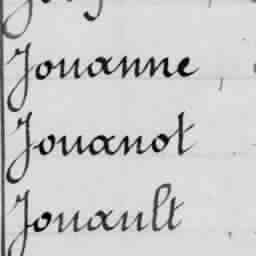 Jouanne
Jouanot
Jouault